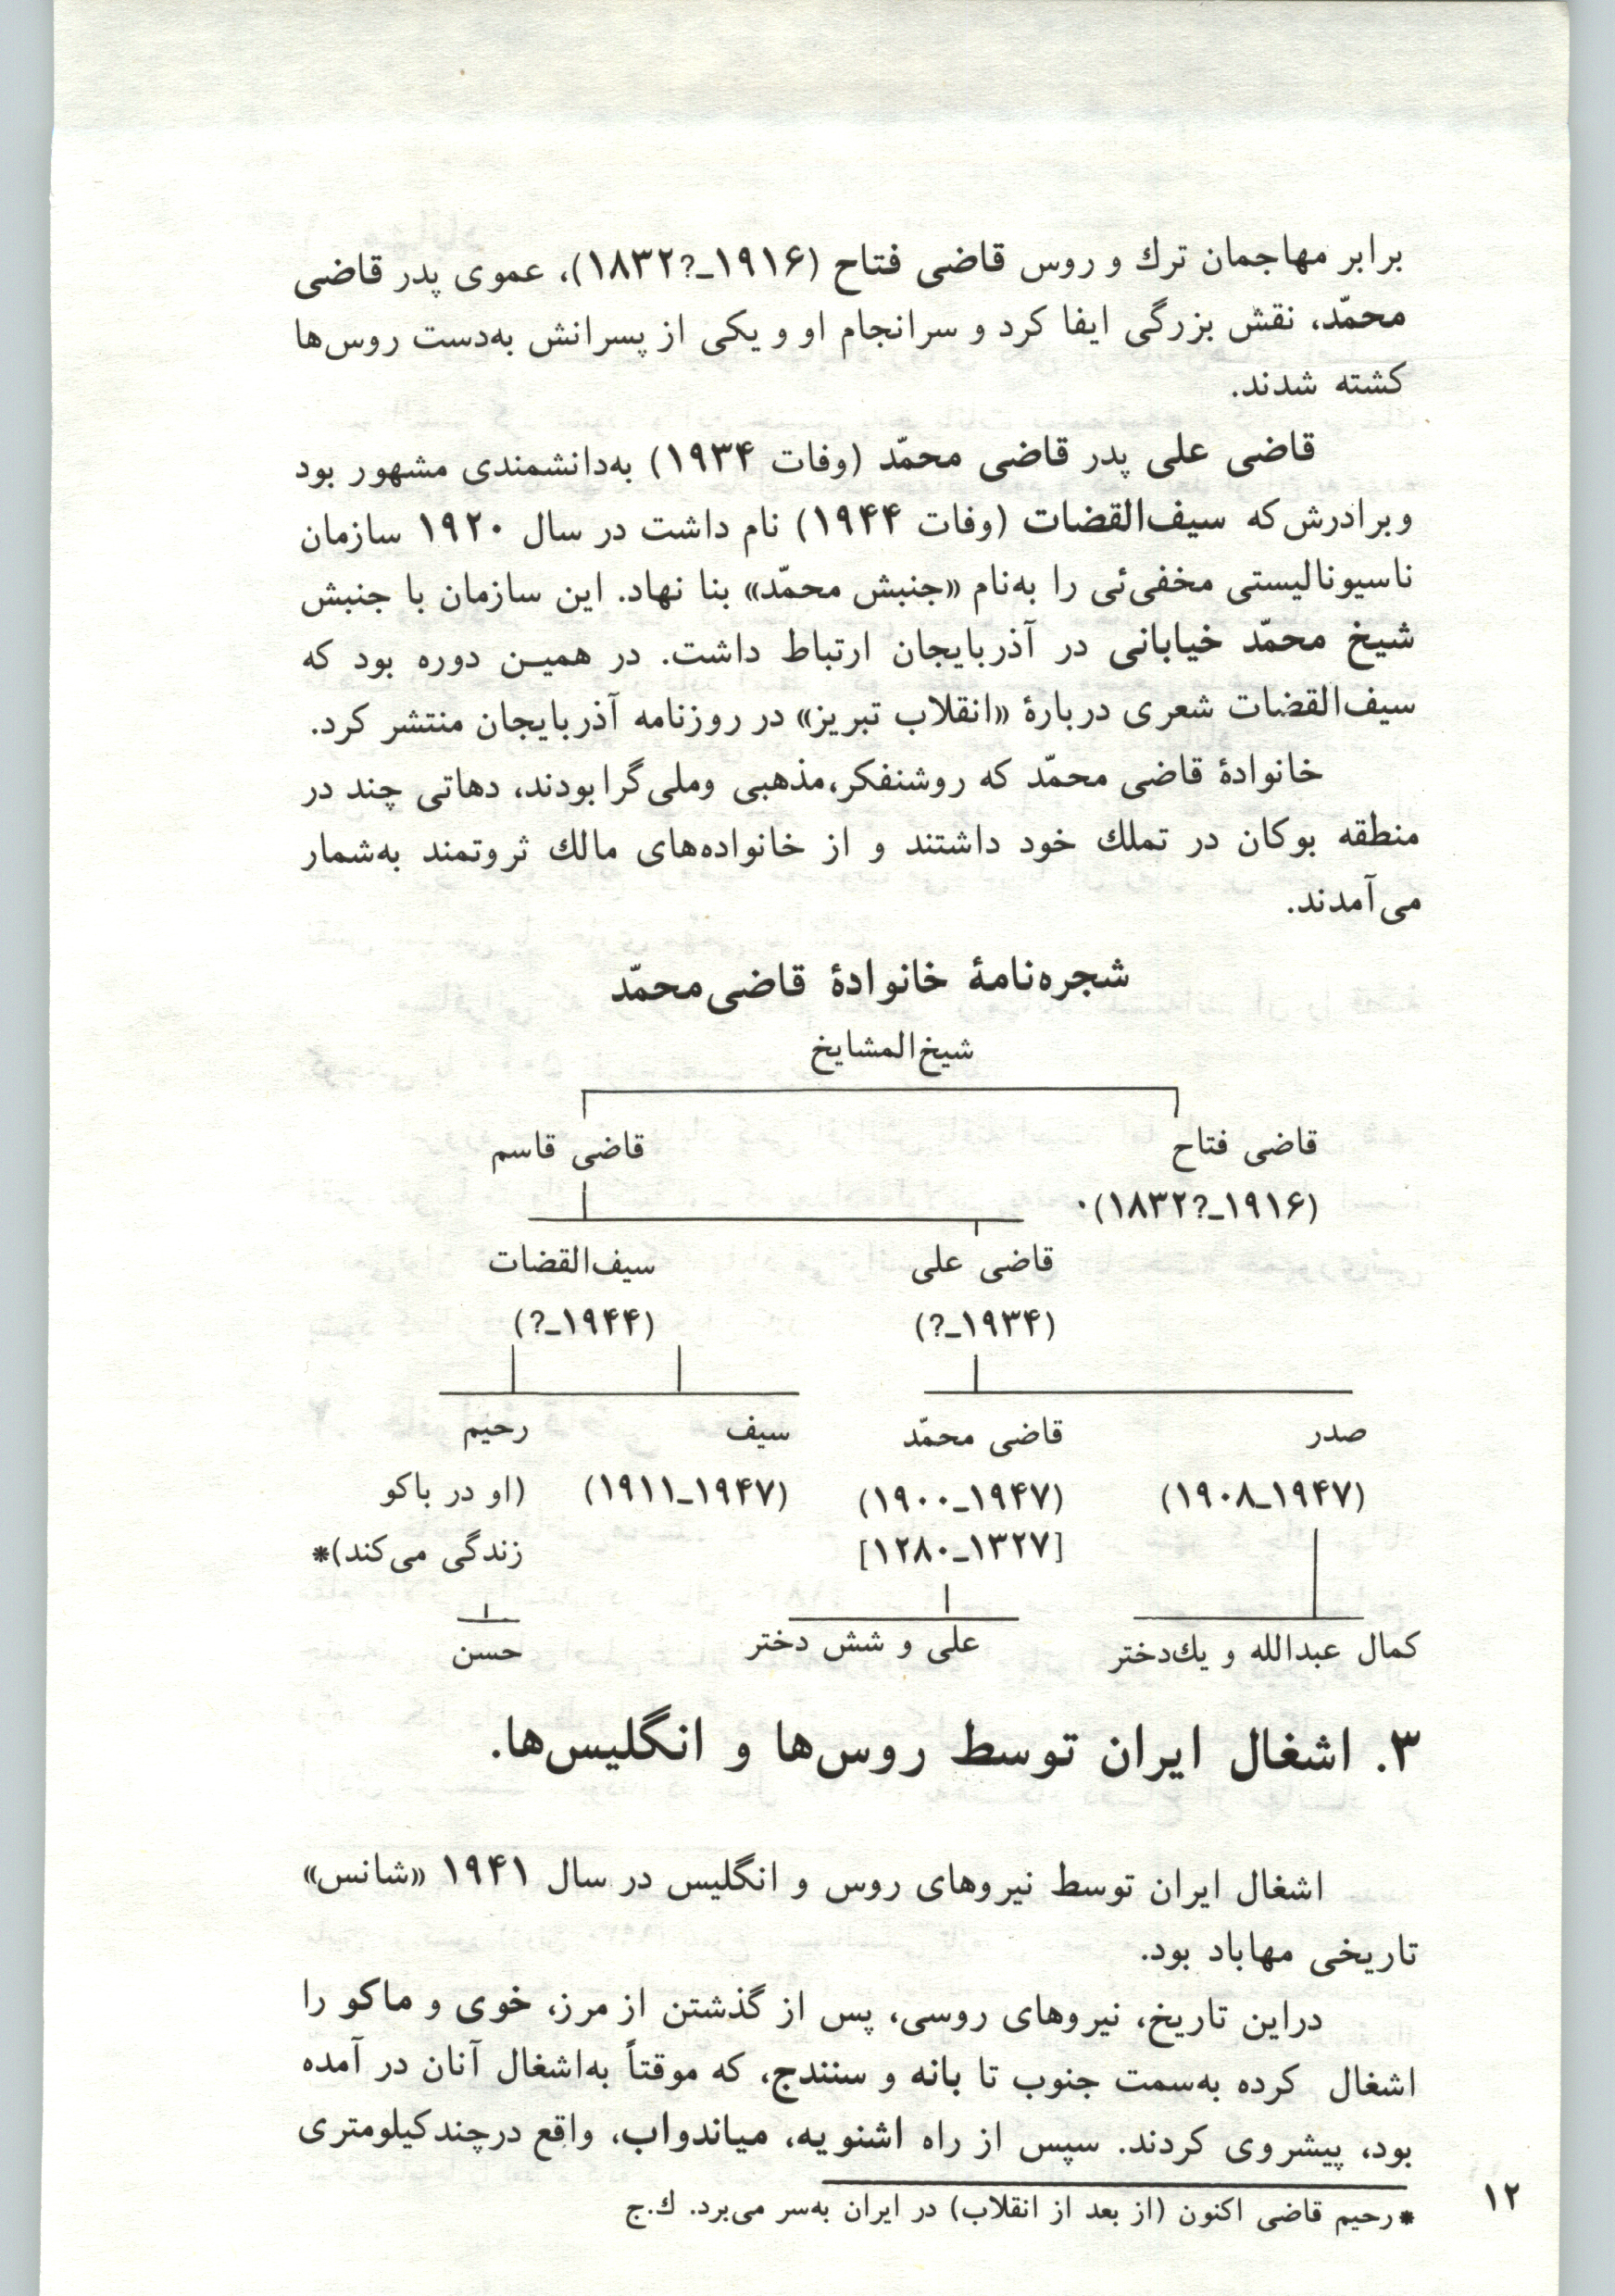 برابر مهاجمان ترك و روس قاضی فتاح (۱۹۱۶ـ?۱۸۳۲)، عموی پدر قاضی
محمّد، نقش بزرگی ایفا کرد و سرانجام او و یکی از پسرانش به‌دست روس‌ها
کشته شدند.
قاضی علی پدر قاضی محمّد (وفات ۱۹۳۴) به‌دانشمندی مشهور بود
وبرادرش که سیف‌القضات (وفات ۱۹۴۴) نام داشت در سال ۱۹۲۰ سازمان
ناسیونالیستی مخفی‌ئی را به‌نام «جنبش محمّد» بنا نهاد. این سازمان با جنبش
شیخ محمّد خیابانی در آذربایجان ارتباط داشت. در همین دوره بود که
سیف‌القضات شعری دربارهٔ «انقلاب تبریز» در روزنامه آذربایجان منتشر کرد.
خانوادهٔ قاضی محمّد که روشنفکر،مذهبی وملی‌گرا بودند، دهاتی چند در
منطقه بوکان در تملك خود داشتند و از خانواده‌های مالك ثروتمند به‌شمار
می‌آمدند.
شجره‌نامهٔ خانوادهٔ قاضی‌محمّد
شیخ‌المشایخ
قاضی فتاح قاضی قاسم
(۱۹۱۶ـ?۱۸۳۲)
قاضی علی سیف‌القضات
(۱۹۳۴ـ?) (۱۹۴۴ـ?)
صدر قاضی محمّد سیف رحیم
(۱۹۴۷ـ۱۹۰۸) (۱۹۴۷ـ۱۹۰۰) (۱۹۴۷ـ۱۹۱۱) (او در باکو
[۱۳۲۷ـ۱۲۸۰] زندگی می‌کند)*
کمال عبدالله و یك‌دختر علی و شش دختر حسن
۳. اشغال ایران توسط روس‌ها و انگلیس‌ها.
اشغال ایران توسط نیروهای روس و انگلیس در سال ۱۹۴۱ «شانس»
تاریخی مهاباد بود.
دراین تاریخ، نیروهای روسی، پس از گذشتن از مرز، خوی و ماکو را
اشغال کرده به‌سمت جنوب تا بانه و سنندج، که موقتاً به‌اشغال آنان در آمده
بود، پیشروی کردند. سپس از راه اشنویه، میاندواب، واقع درچندکیلومتری
*رحیم قاضی اکنون (از بعد از انقلاب) در ایران به‌سر می‌برد. ك.ج
۱۲